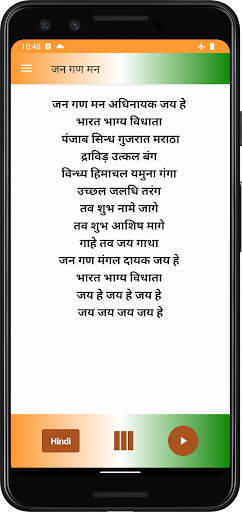 10:48
जन गण मन
जन गण मन अधिनायक जय हे
भारत भाग्य विधाता
पंजाब सिन्ध गुजरात मराठा
द्राविड़ उत्कल बंग
विन्ध्य हिमाचल यमुना गंगा
उच्छल जलधि तरंग
तव शुभ नामे जागे
तव शुभ आशिष मागे
गाहे तव जय गाथा
जन गण मंगल दायक जय हे
भारत भाग्य विधाता
जय हे जय हे जय हे
जय जय जय जय हे
Hindi